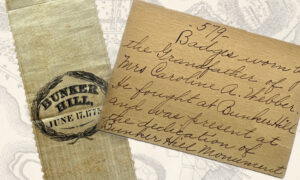 BUNKER
HILL,
JUNE 17, 1775
579.
Badges worn by
the Grandfather of
Mrs Caroline A. Webber
He fought at Bunker Hill
and was present at
the dedication of
Bunker Hill Monument